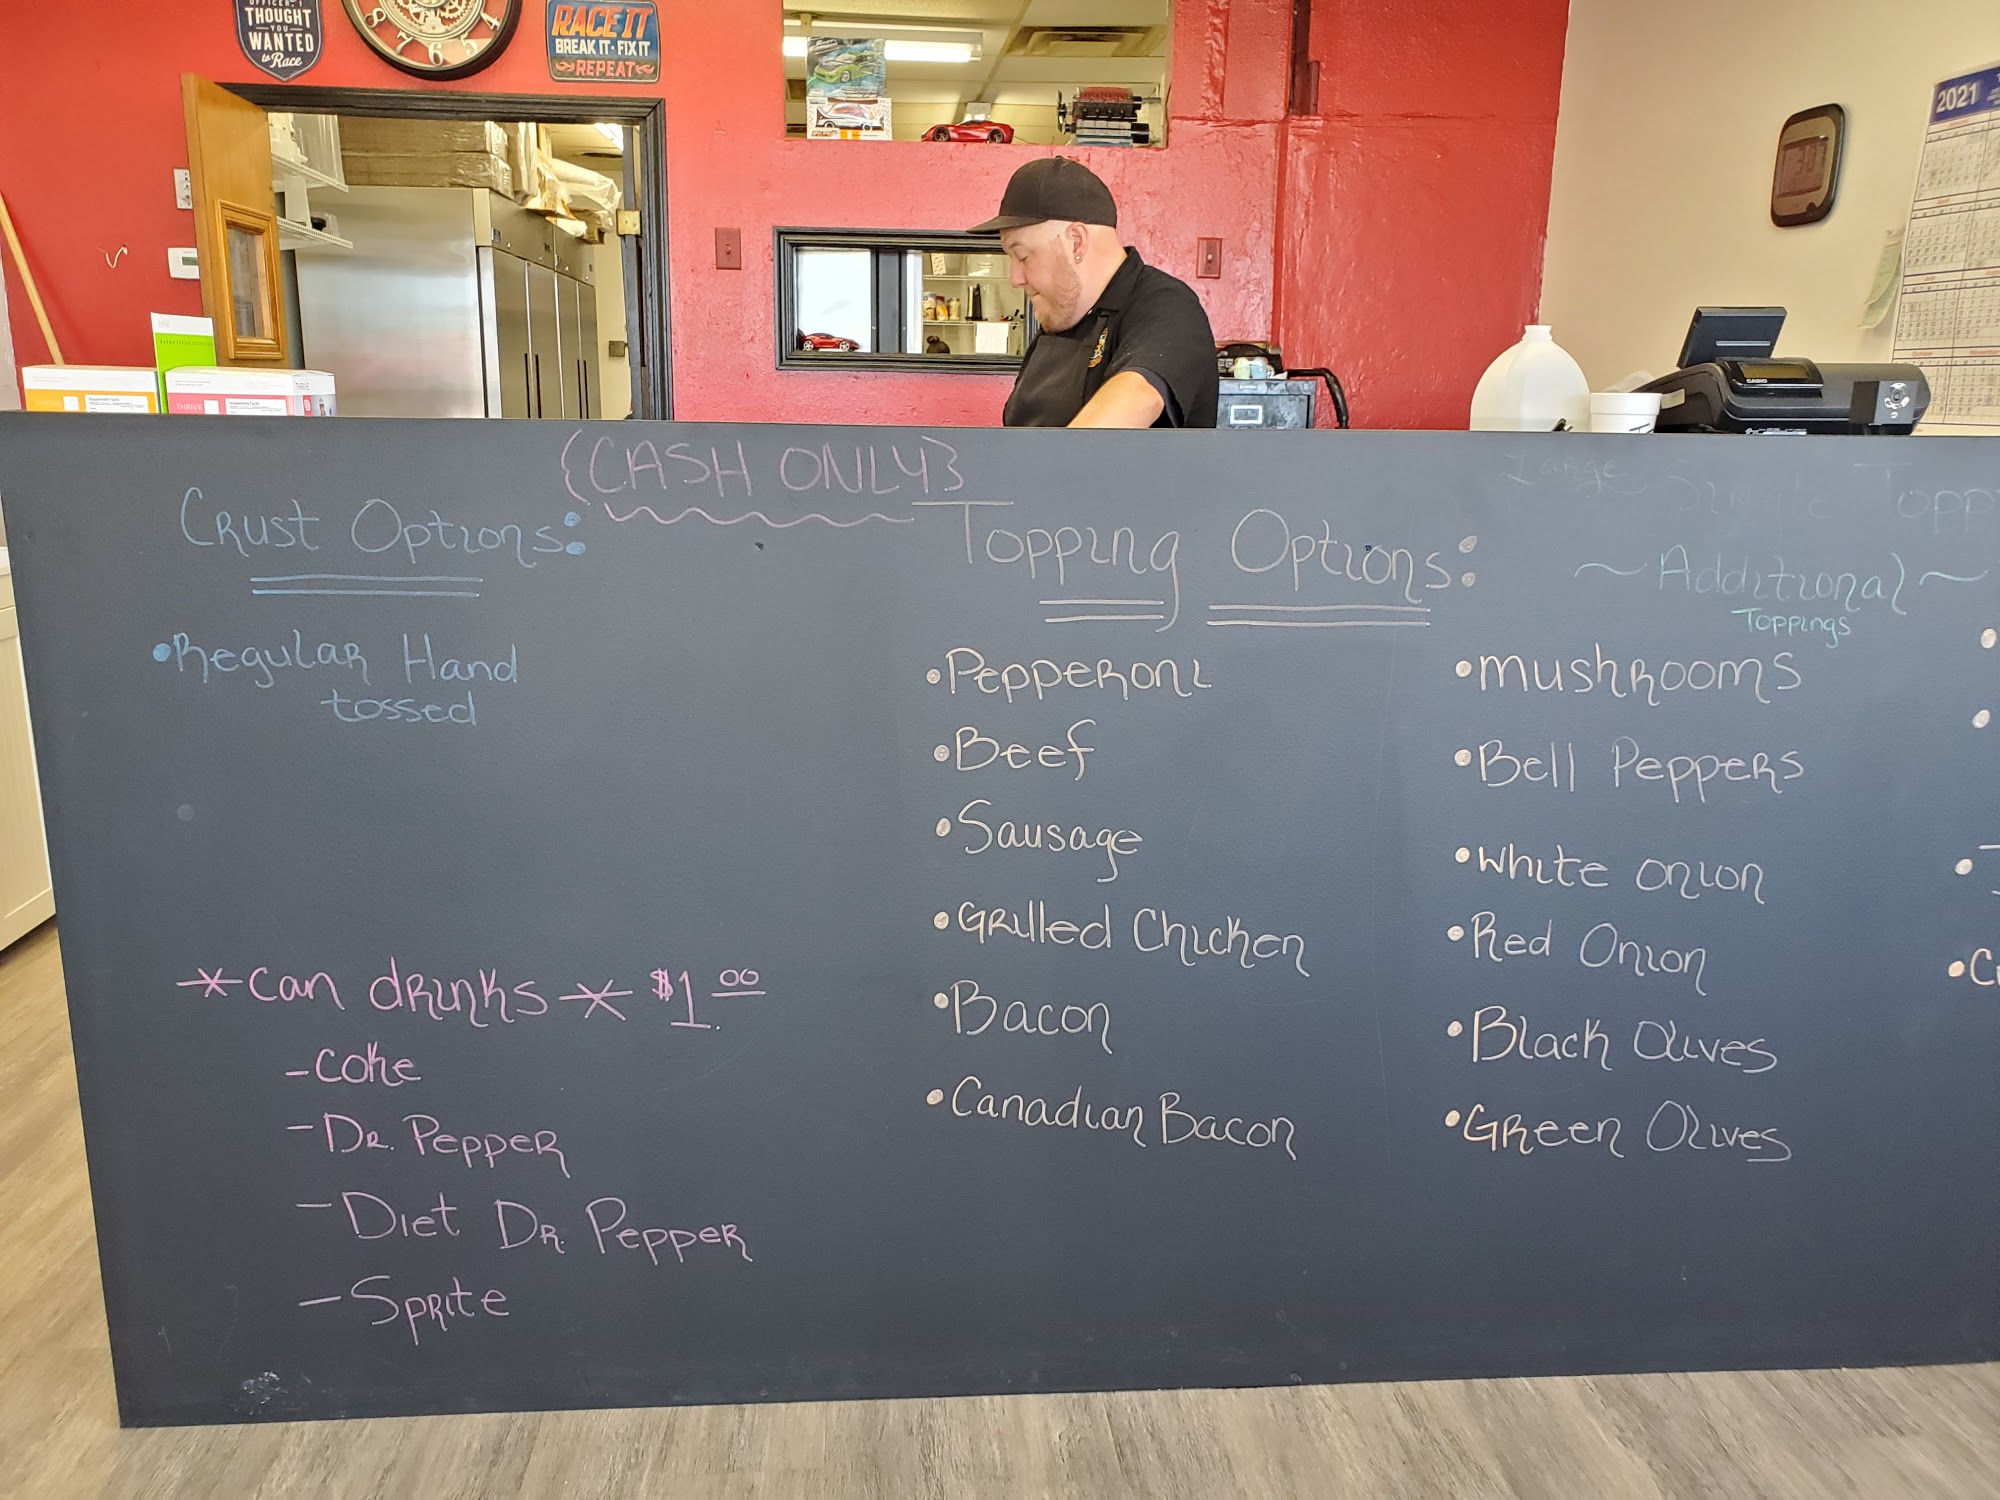 OFFICER, I
THOUGHT
YOU
WANTED
to Race
RACE IT
BREAK IT · FIX IT
REPEAT
2021
THRIVE
CASIO
{CASH ONLY}
Crust Options:
•Regular Hand
tossed
*Can drinks* $1.00
-Coke
-Dr. Pepper
-Diet Dr. Pepper
-Sprite
Topping Options:
•Pepperoni
•Beef
•Sausage
•Grilled Chicken
•Bacon
•Canadian Bacon
Large Single Topp
~Additional~
Toppings
•Mushrooms
•Bell Peppers
•White Onion
•Red Onion
•Black Olives
•Green Olives